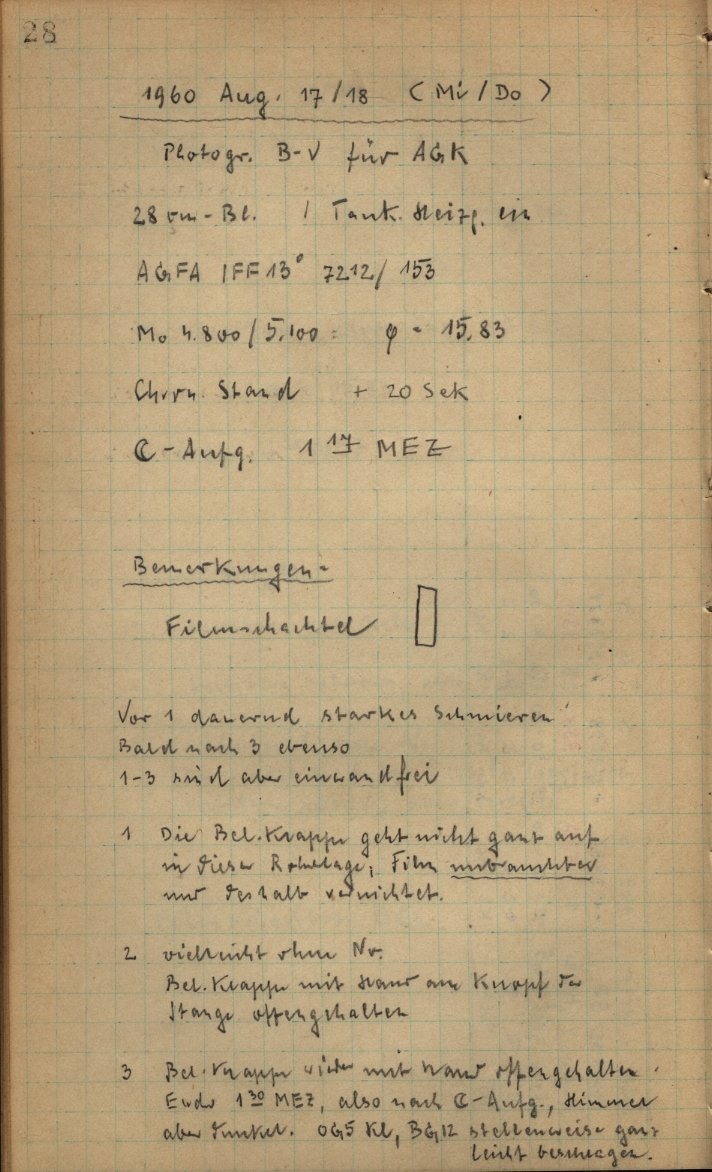 28
1960 Aug. 17/18 (Mi/Do)
Photogr. B-V für AGK
28 cm-Bl. / Tauk. Heizg. ein
AGFA IFF 13° 7212/153
Mo 4.800/5.100 φ = 15,83
Chron. Stand + 20 Sek
☾-Aufg. 1 17 MEZ
Bemerkungen:
Filmschachtel
Vor 1 dauernd starkes Schmieren
Bald nach 3 ebenso
1-3 sind aber einwandfrei
1 Die Bel.Klappe geht nicht ganz auf
in dieser Rohrlage; Film unbrauchbar
und deshalb vernichtet.
2 vielleicht ohne Nr.
Bel.Klappe mit Hand am Knopf der
Stange offengehalten
3 Bel.Klappe wieder mit Hand offengehalten.
Ende 1 30 MEZ, also nach ☾-Aufg., Himmel
aber dunkel. OG5 Kl, BG12 stellenweise ganz
leicht beschlagen.